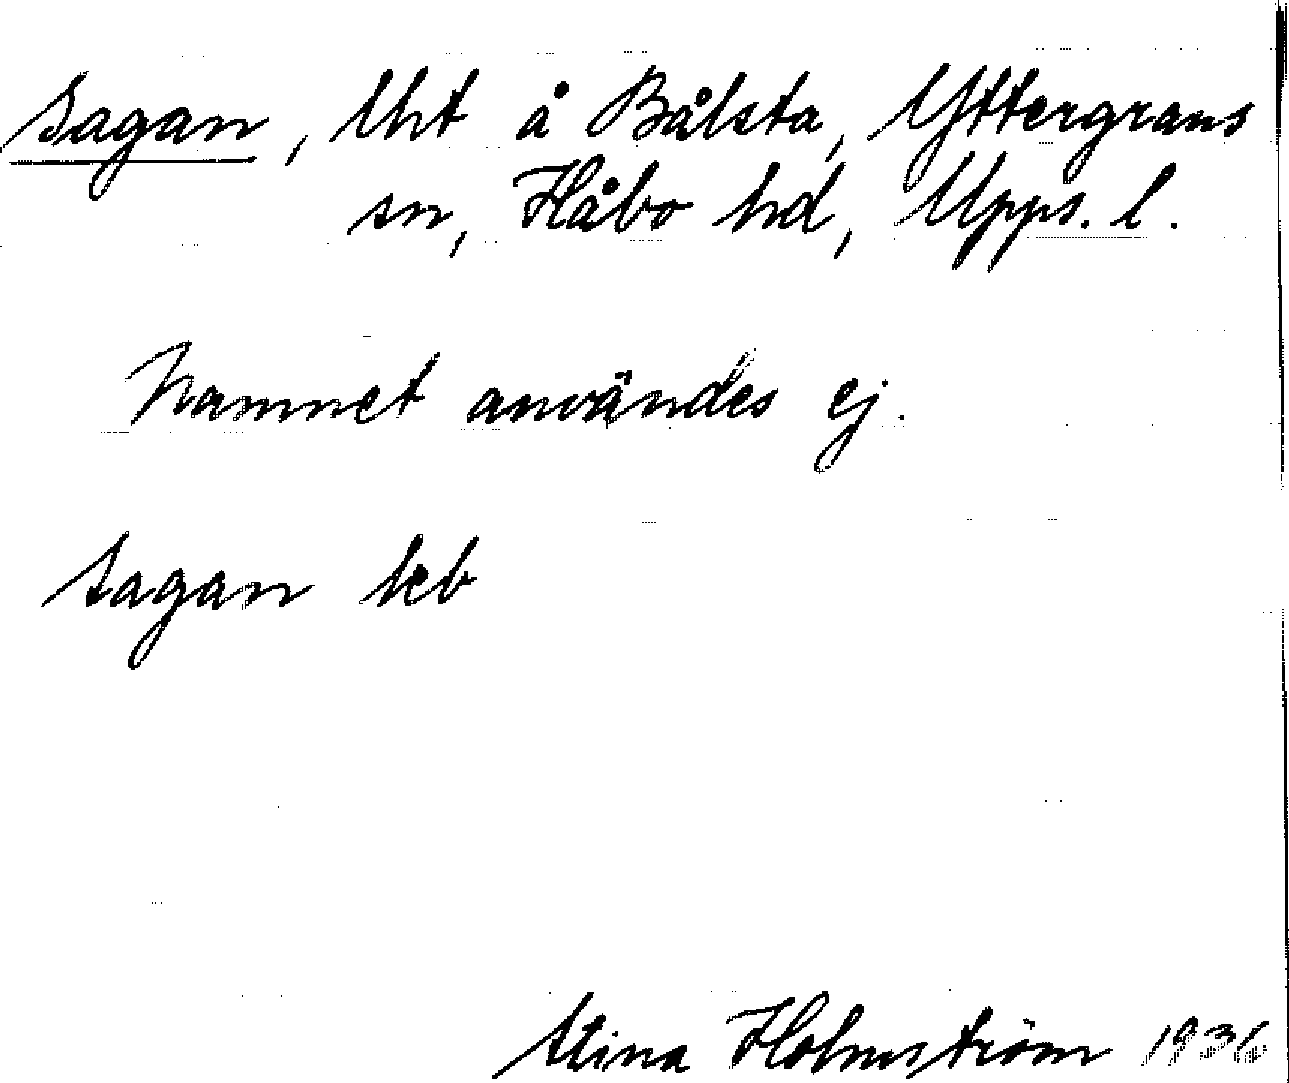 Sagan, lht å Bålsta, Yttergrans
sn, Håbo hd, Upps. l.
Namnet användes ej.
Sagan keb
Stina Holmström 1936